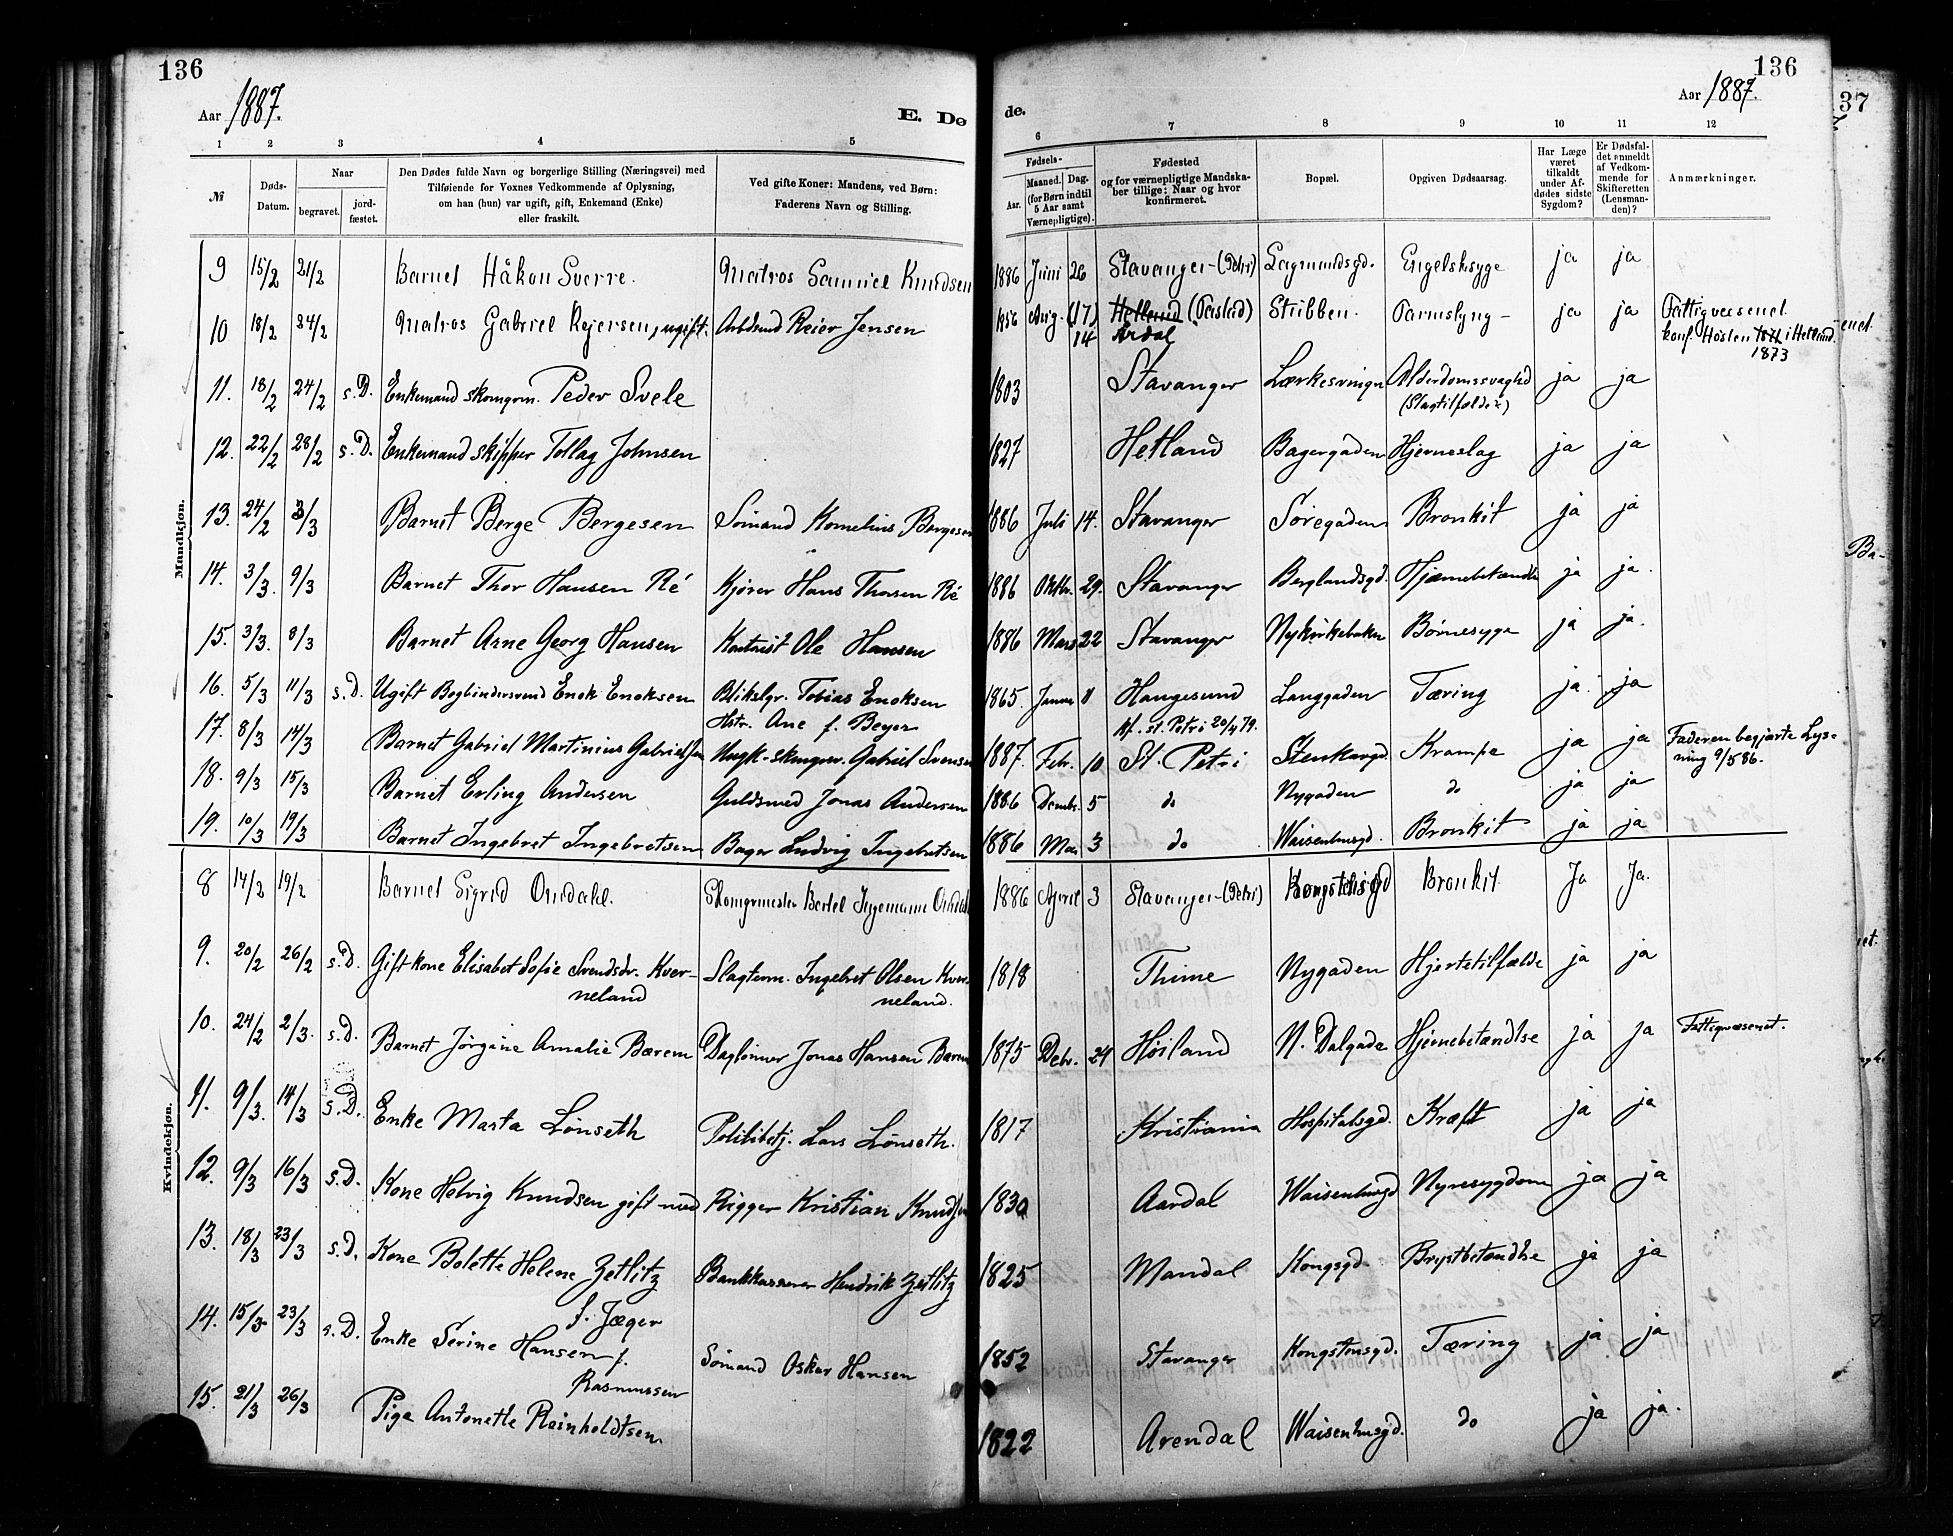 136
136
Aar 1887.
E. Dø
de.
Aar 1887.
37
1 2 3 4 5 6 7 8 9 10 11 12
№
Døds-Datum.
Naar
begravet.
jord-fæstet.
Den Dødes fulde Navn og borgerlige Stilling (Næringsvei) med
Tilføiende for Voxnes Vedkommende af Oplysning,
om han (hun) var ugift, gift, Enkemand (Enke)
eller fraskilt.
Ved gifte Koner: Mandens, ved Børn:
Faderens Navn og Stilling.
Fødsels-
Aar.
Maaned. Dag.
(for Børn indtil
5 Aar samt
Værnepligtige).
Fødested
og for værnepligtige Mandska-
ber tillige: Naar og hvor
konfirmeret.
Bopæl.
Opgiven Dødsaarsag.
Har Læge
været
tilkaldt
under Af-
dødes sidste
Sygdom?
Er Dødsfal-
det anmeldt
af Vedkom-
mende for
Skifteretten
(Lensman-
den)?
Anmærkninger.
Mandkjøn.
9 15/2 21/2 Barnet Håkon Sverre. Matros Samuel Knudsen 1886 Juni 26 Stavanger (Petri) Lagmandsgd. Engelsksyge ja ja
10 18/2 24/2 Matros Gabriel Reiersen, ugift. Arbdsmd Reier Jensen 1856 Aug. (17) 14 Hetland Årdal Stubben. ja ja Fattigvæsenet
konf. Hösten i Hetland.
1873
11. 18/2 24/2 s.D. Enkemand skomgrm. Peder Svele 1803 Stavanger Lærkesvingn Alderdomssvaghed ja ja
(Slagtilfælde)
12. 22/2 28/2 s.D. Enkemand skipper Tollag Johnsen 1827 Hetland Bagergaden Hjerneslag ja ja
13. 24/2 3/3 Barnet Berge Bergesen Sömand Kornelius Bergesen 1886 Juli 14. Stavanger Söregaden Bronkit ja ja
14. 3/3. 9/3 Barnet Thor Hansen Ré Kjörer Hans Thorsen Ré 1886 Oktbr. 29. Stavanger Berglandsgd. Hjernebetændls ja ja.
15. 3/3. 8/3 Barnet Arne Georg Hansen Kontorist Ole Hansen 1886 Mars 22 Stavanger Nykirkebakn Börnesyge ja ja.
16. 5/3 11/3 s.D. Ugift Bogbindersvend Enok Enoksen Blikslgr. Tobias Enoksen 1865. Januar 11 Haugesund Langgaden Tæring ja ja
Hstr. Ane f. Beyer kf. st. Petri 20/4 79.
17. 8/3 14/3 Barnet Gabriel Martinius Gabrielsen Ungk. skomgrsv. Gabriel Svensen 1887. Febr. 10 St. Petri Stenkargd. Krampe ja ja Faderen begjærte Lys-
ning 9/5 86.
18. 9/3 15/3 Barnet Erling Andersen Guldsmed Jonas Andersen 1886 Dembr. 5 do Nygaden do ja ja
19. 10/3 19/3 Barnet Ingebret Ingebretsen Bager Ludvig Ingebretsen 1886 Mai 3 do Waisenhusgd. Bronkit ja ja
Kvindekjøn.
8 14/2 19/2 Barnet Sigrid Omdahl. Skomgrmester Bertel Ingemann Omdahl 1886 April 3 Stavanger (Petri) Kongstensgd Bronkit Ja Ja.
9. 20/2 26/2 s.D. Gift kone Elisabet Sofie Svendsdr. Kver-
neland Slagterm. Ingebret Olsen Kver-
neland. 1818 Thime Nygaden Hjertetilfælde ja ja
10. 24/2 2/3. s.D. Barnet Jörgine Amalie Bærem Daglönner Jonas Hansen Bærem 1875 Debr. 24 Höiland N. Dalgade Hjernebetændlse ja ja Fattigvæsenet.
11. 9/3. 14/3 s.D. Enke Marta Lönseth Politibetj. Lars Lönseth. 1817 Kristiania Hospitalsgd. Kræft ja ja
12. 9/3 16/3 s.D. Kone Helvig Knudsen gift med Rigger Kristian Knudsen 1830 Aardal Waisenhusgd Nyresygdom ja ja
13. 18/3 23/3 s.D. Kone Bolette Helene Zetlitz
f. Jæger Bankkasserer Hendrik Zetlitz 1825 Mandal Kongsgd. Brystbetændlse ja ja
14. 15/3 23/3 s.D. Enke Serine Hansen f.
Rasmussen Sömand Oskar Hansen 1852 Stavanger Kongstensgd. Tæring ja ja
15. 21/3 26/3 Pige Antonette Reinholdtsen. 1822 Arendal Waisenhusgd. do ja ja.